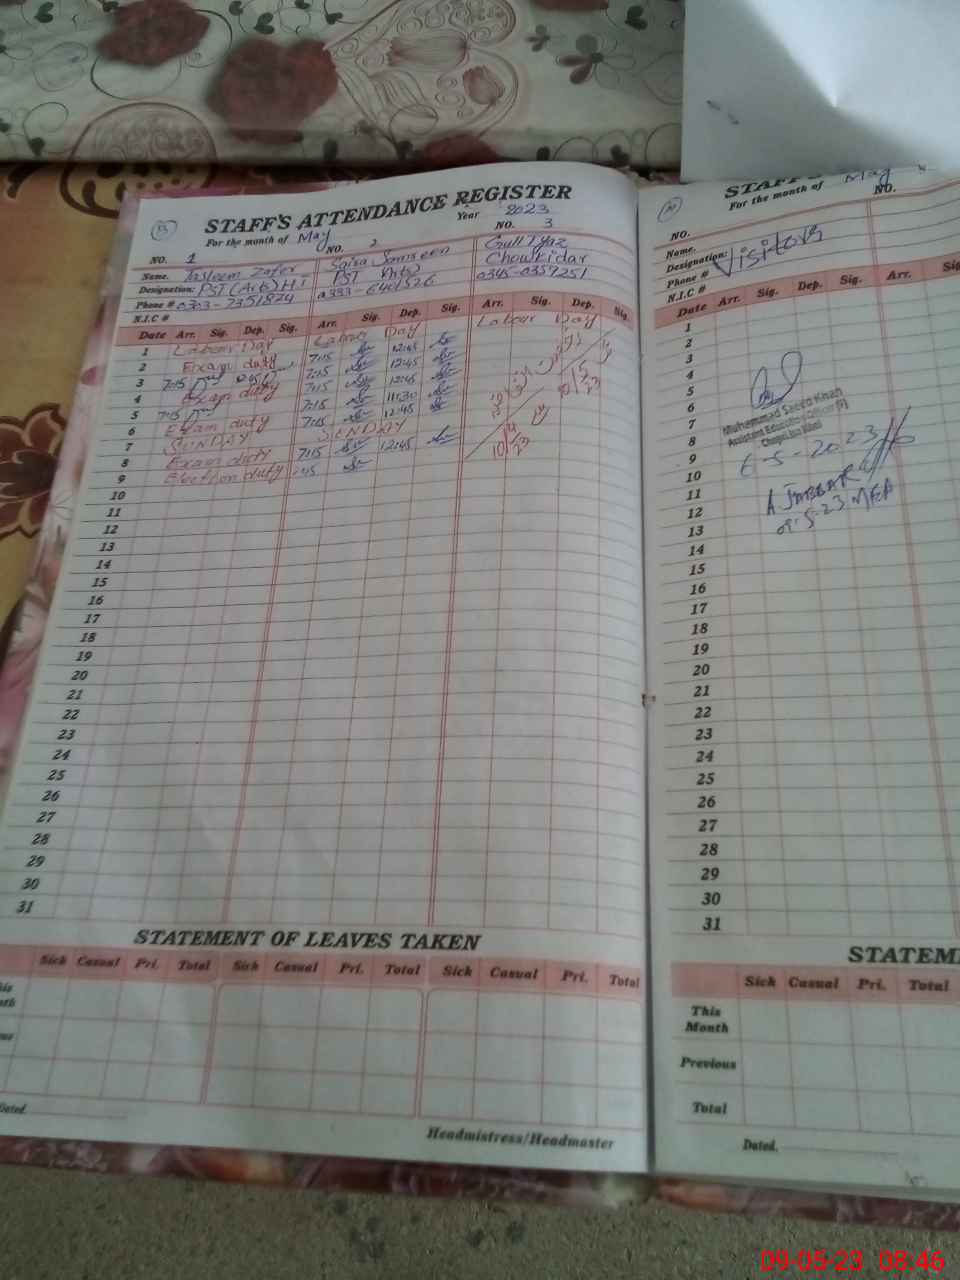 STAFF'S ATTENDANCE REGISTER
For the month of May Year 2023
NO. 1 NO. 2 NO. 3
Name. Tasleem Zafer Saira Samreen Gull Tyaz
Designation: PST (Arb) H.T PST (Arb) Chowkidar
Phone # 0303-7351874 0333-6401526 0345-0359251
N.I.C #
Date Arr. Sig. Dep. Sig. Arr. Sig. Dep. Sig. Arr. Sig. Dep. Sig.
1 Labour Day Labour Day Labour Day
2 Exam duty 7:15 12:45
3 7:15 7:15 12:45
4 Exam duty 7:15 12:45
5 7:15 7:15 11:30
6 Exam duty 7:15 12:45
7 SUNDAY SUNDAY
8 Exam duty 7:15 12:45
9 Election duty
10
11
12
13
14
15
16
17
18
19
20
21
22
23
24
25
26
27
28
29
30
31
STATEMENT OF LEAVES TAKEN
Sick Casual Pri. Total Sick Casual Pri. Total Sick Casual Pri. Total
Dated.
Headmistress/Headmaster
For the month of May
NO. NO.
Name.
Designation: Visitors
Phone #
N.I.C #
Arr. Sig. Dep. Sig. Arr.
1
2
3
4
5
6
7
8
9
10
11
12
13
14
15
16
17
18
19
20
21
22
23
24
25
26
27
28
29
30
31
Muhammad Saeed Khan
Assistant Education Officer
6-5-2023
A. JABBAR
09-5-23 MEA
STATEM
Sick Casual Pri. Total
This
Month
Previous
Total
Dated.
09-05-23 08:46